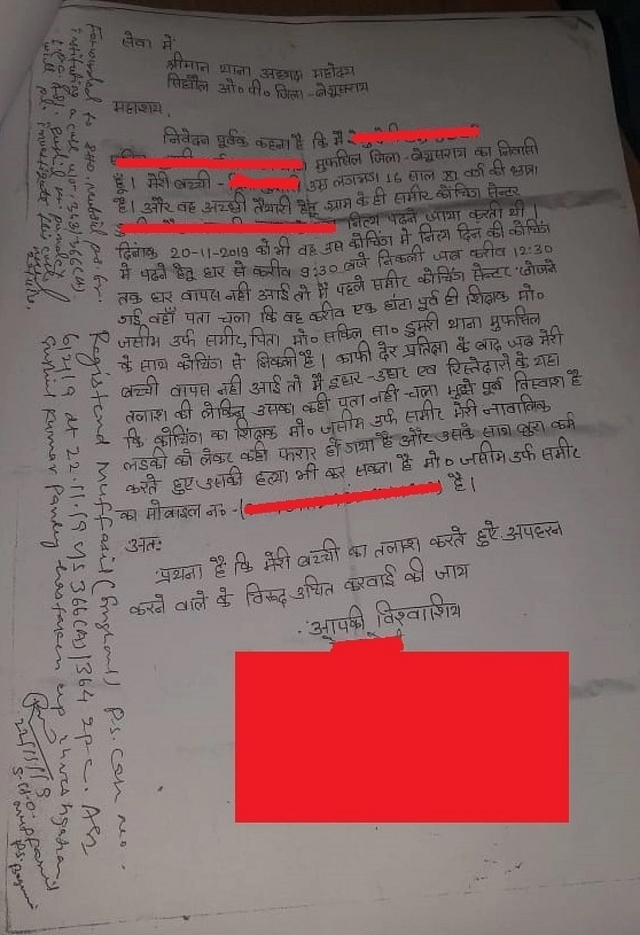 सेवा में,
श्रीमान थाना अध्यक्ष महोदय
सिंघौल ओ० पी० जिला - बेगूसराय
महाशय,
निवेदन पूर्वक कहना है कि मैं
मुफसिल जिला - बेगूसराय का निवासी
हूँ। मेरी बच्ची - उम्र लगभग 16 साल वर्ग की छात्रा
है। और वह अच्छी तैयारी हेतु ग्राम के ही समीर कोचिंग सेन्टर
नित्य पढ़ने जाया करती थी।
दिनांक 20-11-2019 को भी वह उस कोचिंग में नित्य दिन की कोचिंग
में पढ़ने हेतु घर से करीव 9:30 बजे निकली जब करीव 12:30
तक घर वापस नहीं आई तो मैं पहले समीर कोचिंग सेन्टर खोजने
गई वहाँ पता चला कि वह करीव एक घंटा पूर्व ही शिक्षक मो०
जसीम उर्फ समीर, पिता मो० सकिल सा० डुमरी थाना मुफसिल
के साथ कोचिंग से निकली है। काफी देर प्रतिक्षा के बाद जब मेरी
बच्ची वापस नहीं आई तो मैं इधर-उधर एवं रिस्तेदारों के यहा
तलाश की लेकिन उसका कही पता नहीं चला मुझे पूर्व विस्वाश है
कि कोचिंग का शिक्षक मो० जसीम उर्फ समीर मेरी नावालिक
लडकी को लेकर कही फरार हो गया है और उसके साथ बुरा कर्म
करते हुए उसकी हत्या भी कर सकता है मो० जसीम उर्फ समीर
का मोवाइल न० - ( ) है।
अतः
प्रथना है कि मेरी बच्ची का तलाश करते हुऐ अपहरन
करने वाले के विरूद उचित करवाई की जाय
आपकी विश्वाशिय
Forwarded to SHO. Muffasil p.s. for
instituting a case u/s. 363/366(A).
will investigate
Registered Muffasil (Singhaul) P.S. Case no.
624/19 dt 22.11.19 u/s 366(A)/364 IPC. ASI
Sushil Kumar Pandey has taken up investigation
22/11/19
S.H.O. Muffasil